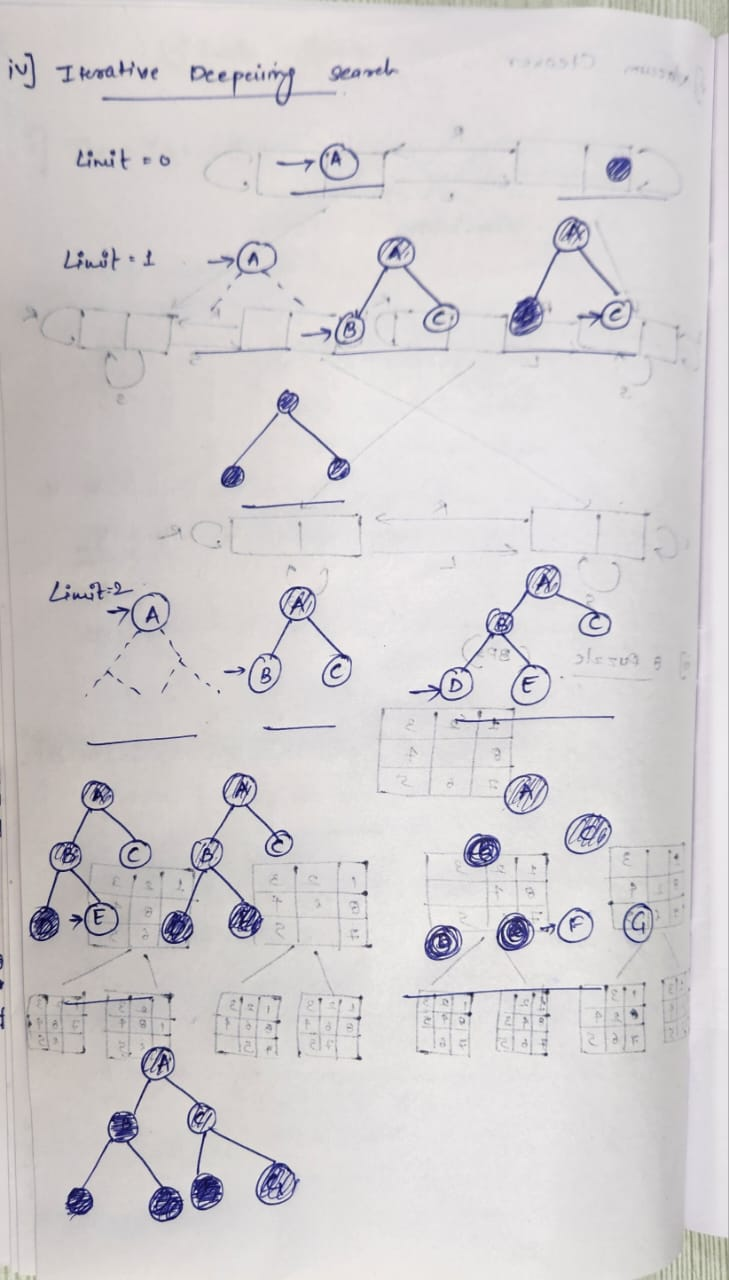 iv] Iterative Deepeiing search
Limit = 0
A
Limit = 1
A
A
B
C
A
B
C
Limit=2
A
A
B
C
A
B
C
D
E
A
B
C
E
A
B
C
A
B
C
F
G
A
B
C